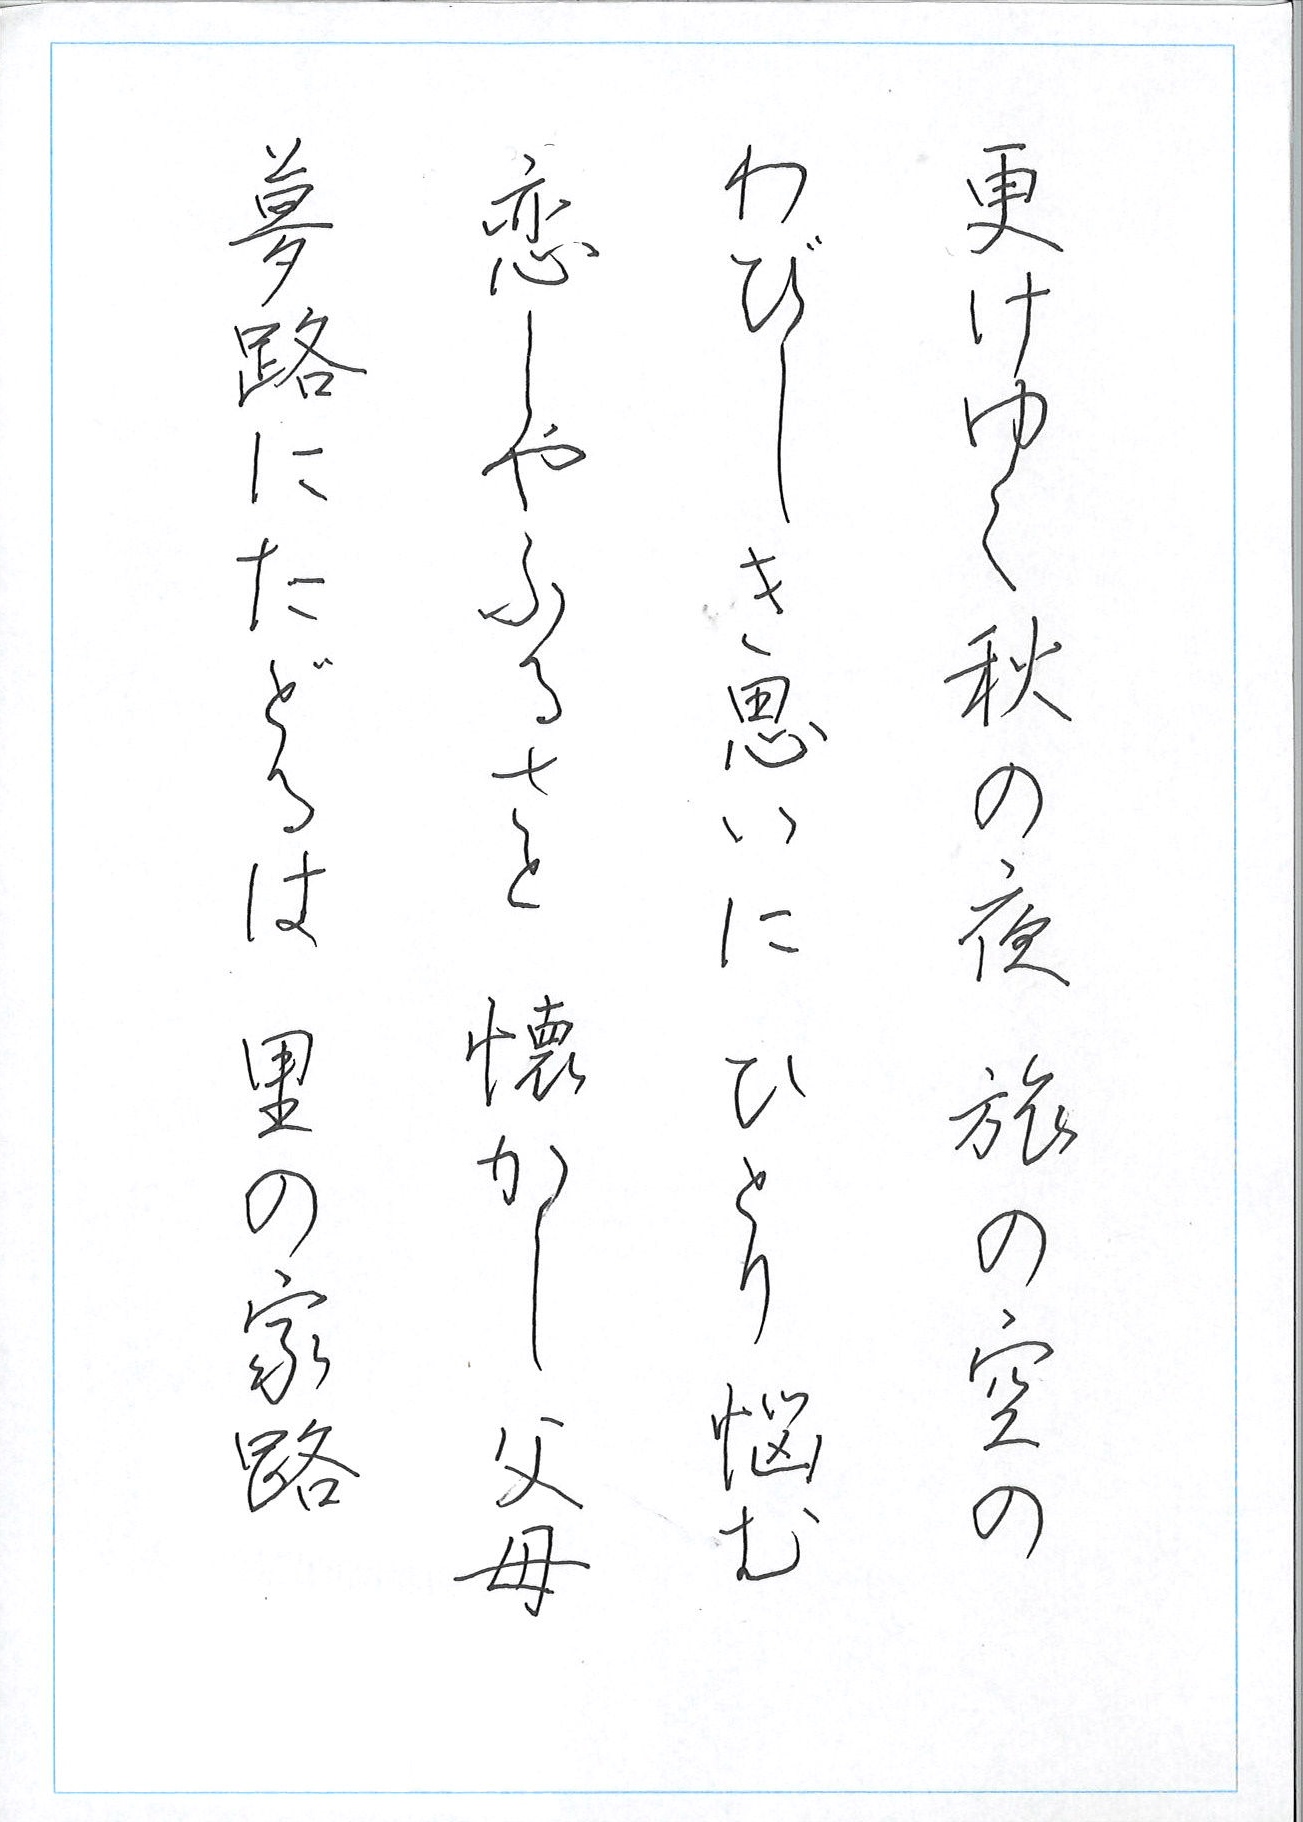 更けゆく秋の夜 旅の空の
わびしき思いに ひとり悩む
恋しやふるさと 懐かし 父母
夢路にたどるは 里の家路